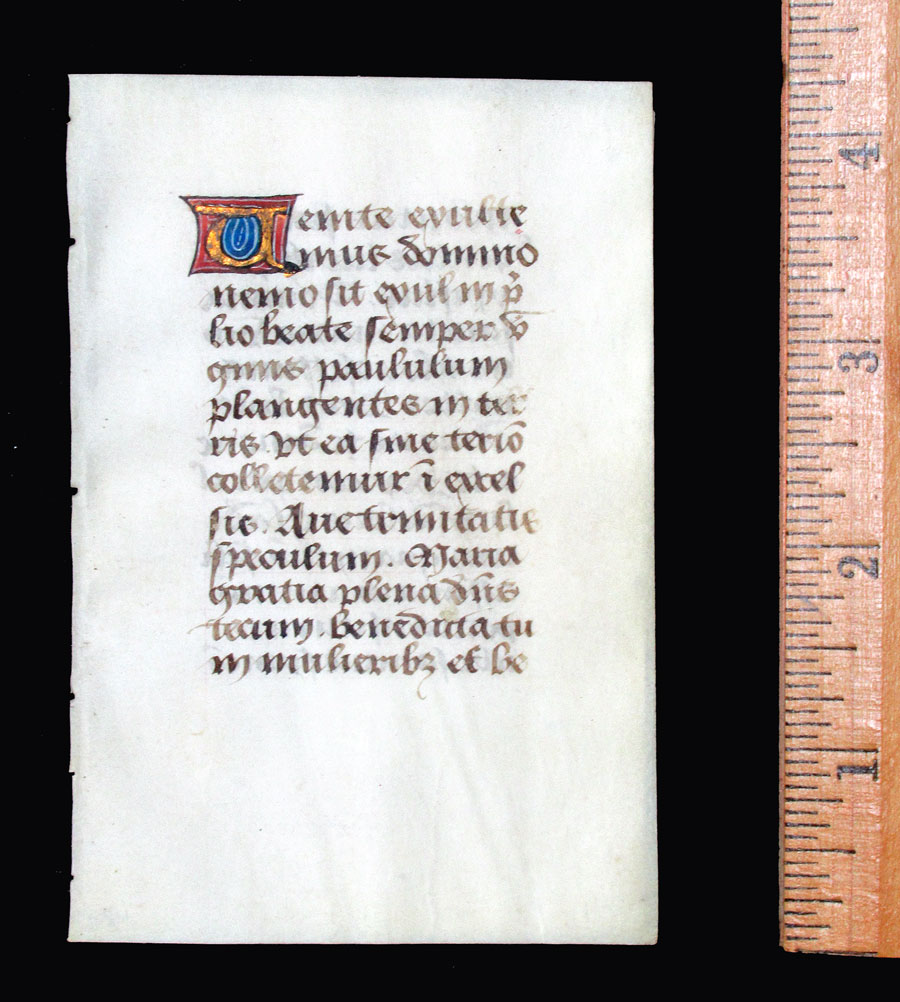 Uenite exulte
mus domino
nemo sit exul in p̄
lio beate semper v̄
ginis paululum
plangentes in ter
ris vt ea sine teriō
colletemur ī excel
sis. Aue trinitatis
speculum. Maria
gratia plena dn̄s
tecum benedicta tu
in mulieribꝫ et be
4
3
2
1